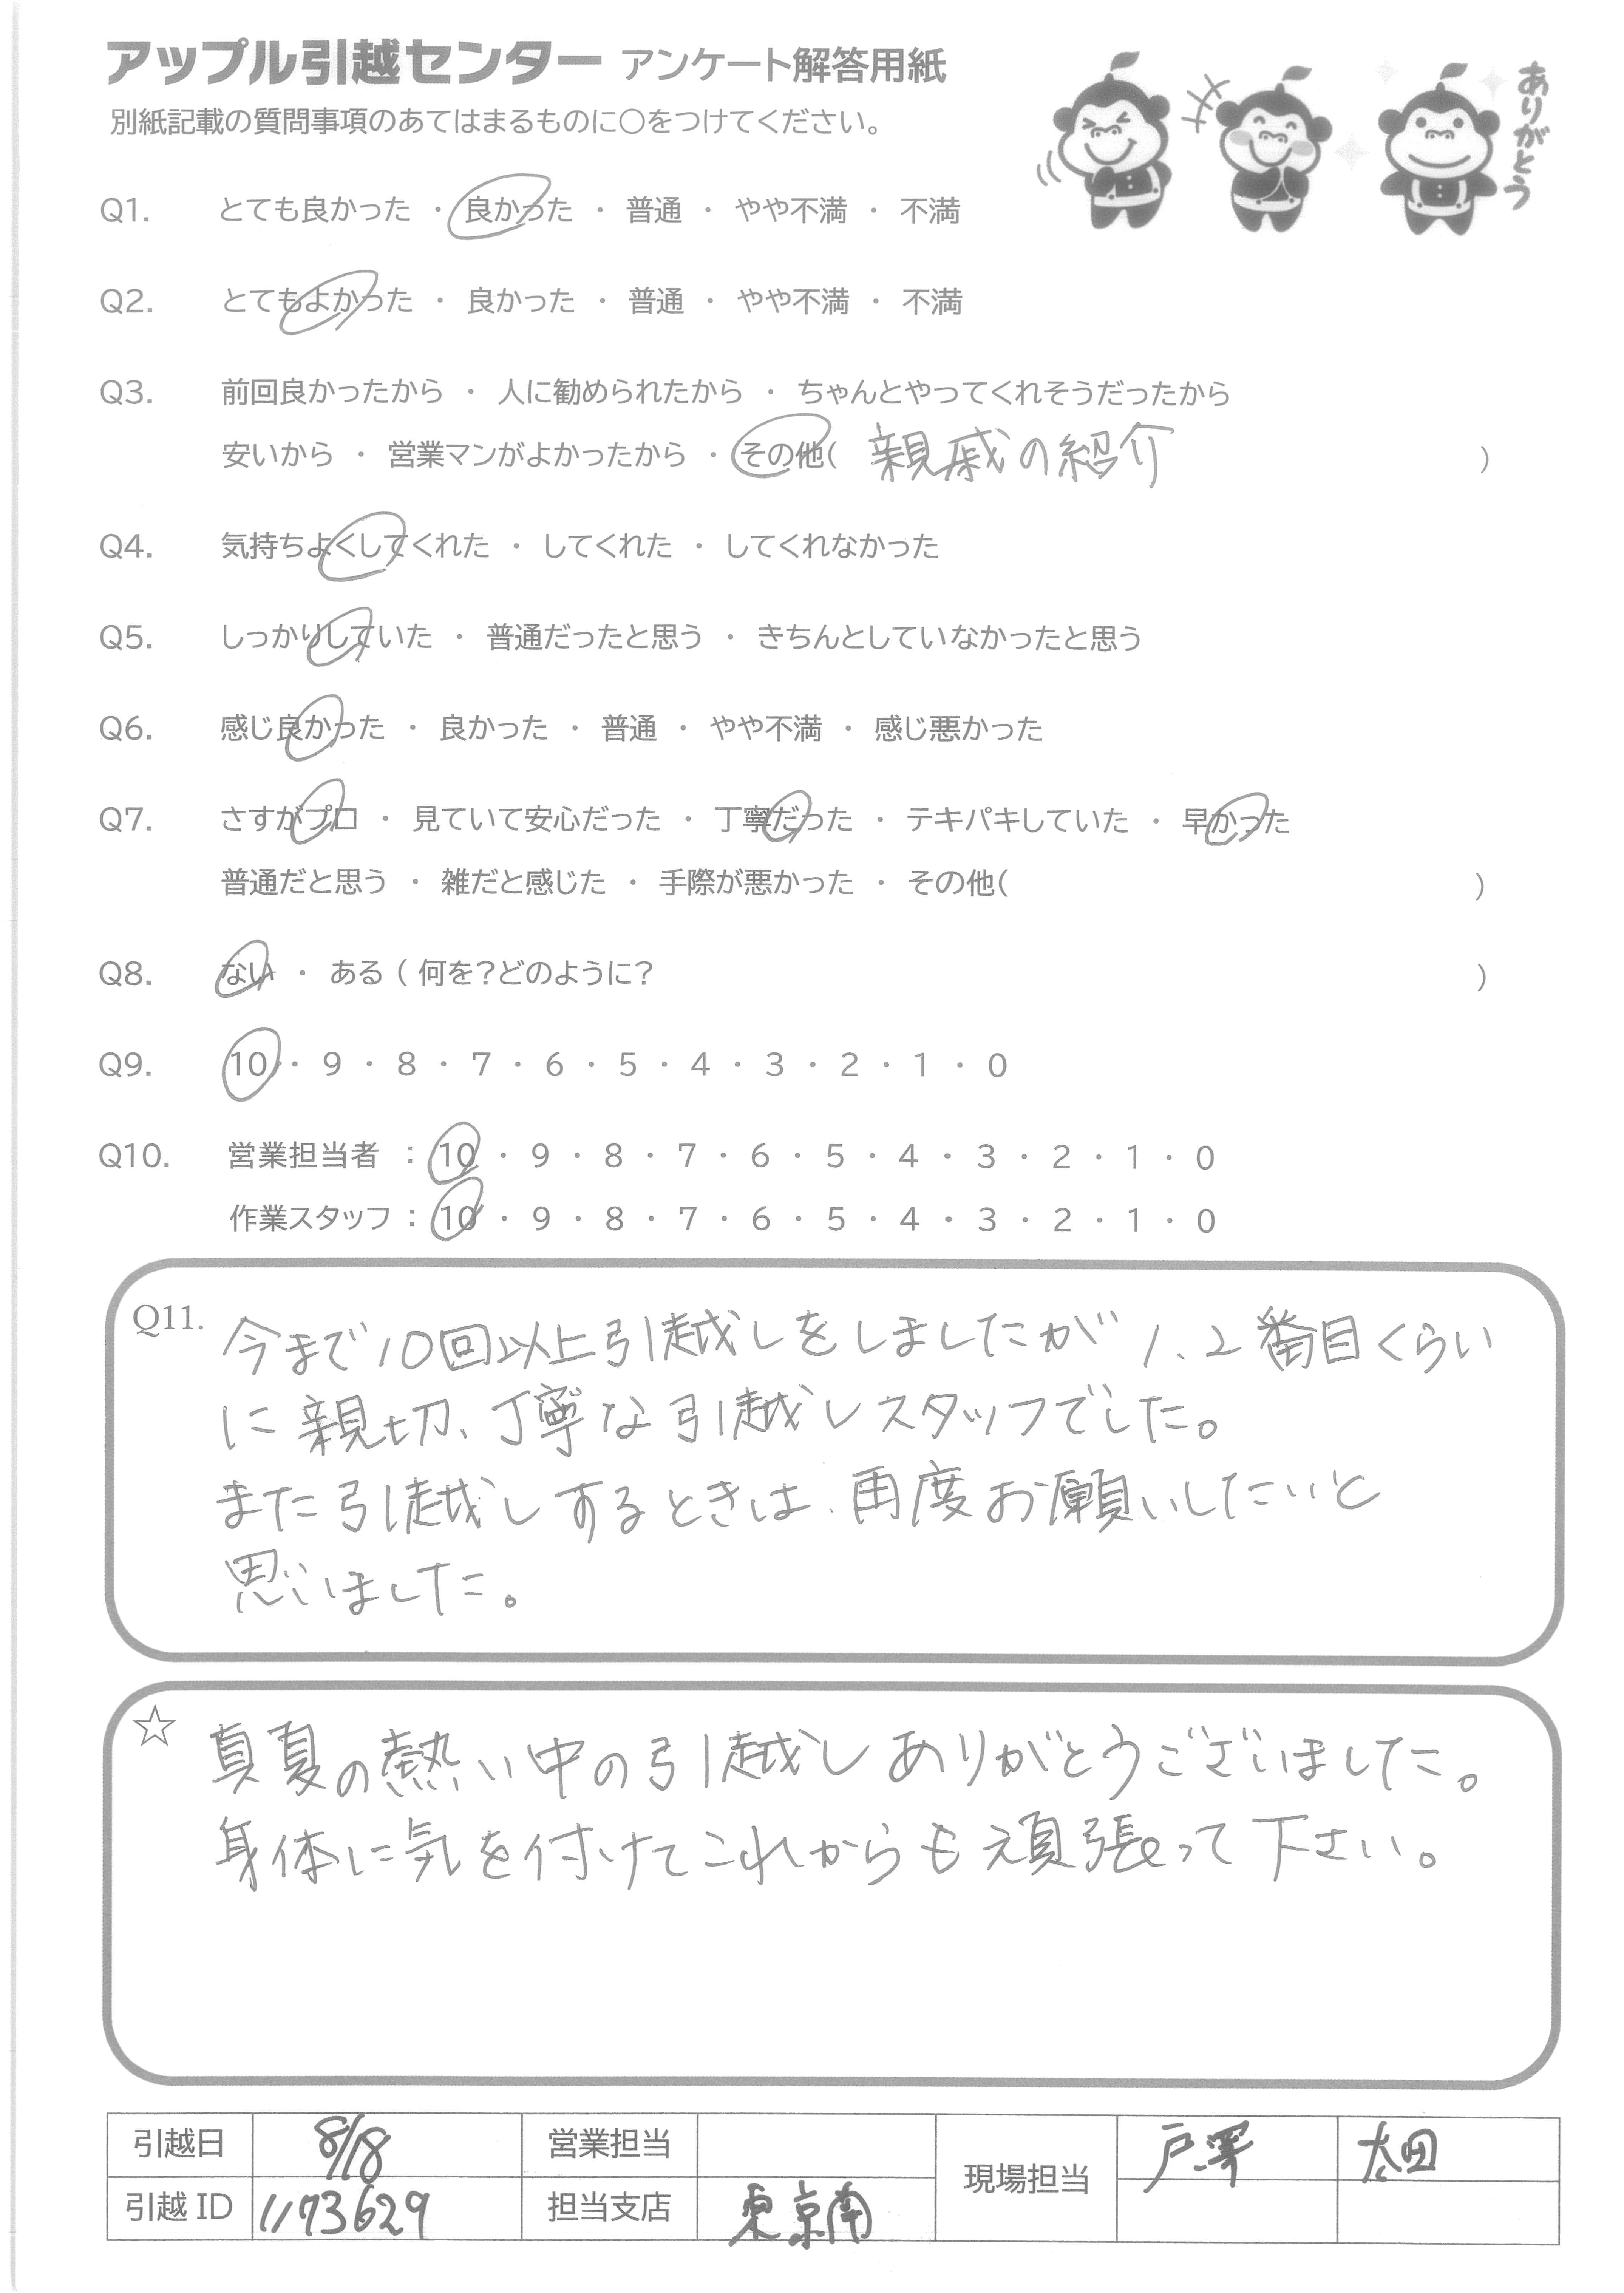 アップル引越センター アンケート解答用紙
別紙記載の質問事項のあてはまるものに〇をつけてください。
ありがとう
Q1. とても良かった ・ 良かった ・ 普通 ・ やや不満 ・ 不満
Q2. とてもよかった ・ 良かった ・ 普通 ・ やや不満 ・ 不満
Q3. 前回良かったから ・ 人に勧められたから ・ ちゃんとやってくれそうだったから
安いから ・ 営業マンがよかったから ・ その他( 親戚の紹介 )
Q4. 気持ちよくしてくれた ・ してくれた ・ してくれなかった
Q5. しっかりしていた ・ 普通だったと思う ・ きちんとしていなかったと思う
Q6. 感じ良かった ・ 良かった ・ 普通 ・ やや不満 ・ 感じ悪かった
Q7. さすがプロ ・ 見ていて安心だった ・ 丁寧だった ・ テキパキしていた ・ 早かった
普通だと思う ・ 雑だと感じた ・ 手際が悪かった ・ その他( )
Q8. ない ・ ある ( 何を?どのように? )
Q9. 10 ・ 9 ・ 8 ・ 7 ・ 6 ・ 5 ・ 4 ・ 3 ・ 2 ・ 1 ・ 0
Q10. 営業担当者 : 10 ・ 9 ・ 8 ・ 7 ・ 6 ・ 5 ・ 4 ・ 3 ・ 2 ・ 1 ・ 0
作業スタッフ : 10 ・ 9 ・ 8 ・ 7 ・ 6 ・ 5 ・ 4 ・ 3 ・ 2 ・ 1 ・ 0
Q11. 今まで10回以上引越しをしましたが 1、2番目くらい
に親切、丁寧な引越しスタッフでした。
また引越しするときは、再度お願いしたいと
思いました。
☆ 真夏の熱い中の引越しありがとうございました。
身体に気を付けてこれからも頑張って下さい。
引越日 8/18 営業担当 現場担当 戸澤 太田
引越ID 1173629 担当支店 東京南